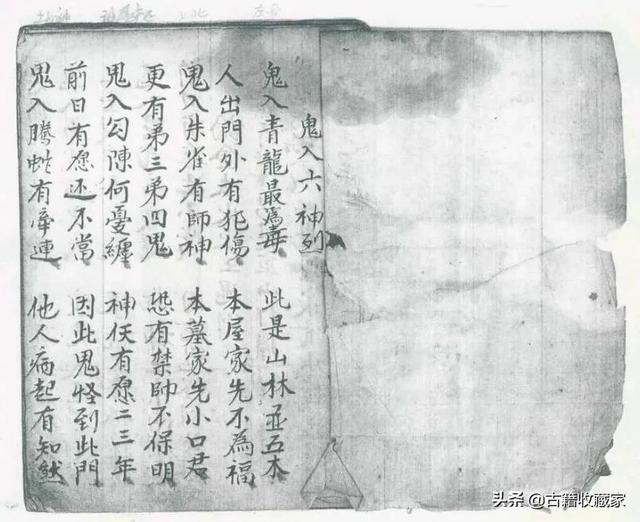 鬼入六神列
鬼入青龍最為毒 此是山林并五木
人出門外有犯傷 本屋家先不為福
鬼入朱雀有師神 本墓家先小口君
更有弟三弟四鬼 恐有禁師不保明
鬼入勾陳何憂纏 神伏有愿二三年
前日有愿还不當 因此鬼怪到此門
鬼入騰蛇有牽連 他人病起有知然
头条 @古籍收藏家